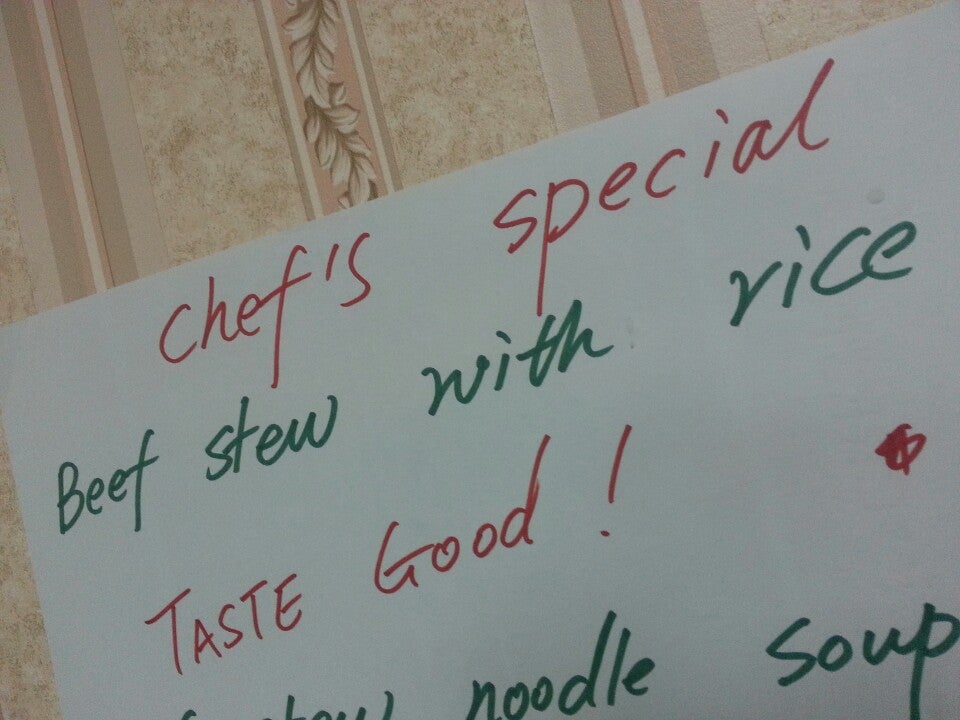 chef's special
Beef stew with rice
TASTE Good!
stew noodle soup